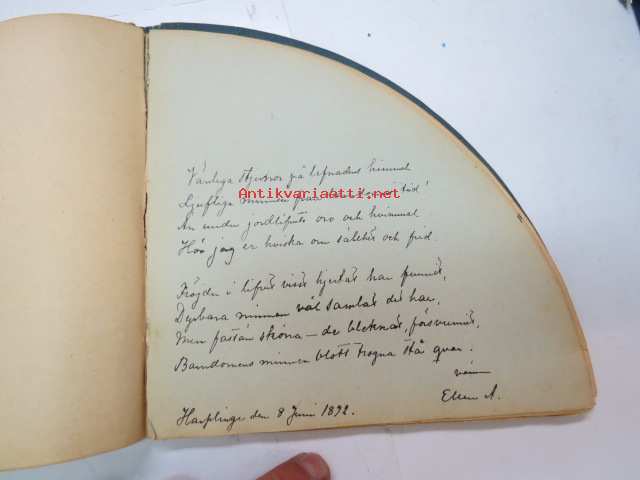 Vänliga stjernor på lefnadens himmel
Ljufliga minnen från
Antikvariaatti.net
An under jordlifvets oro och hvimmel
Hör jag er hviska om sällhet och frid.
Fröjder i lifvet visst hjertat har funnit,
Dyrbara minnen väl samlas det har,
Men fastän sköna – de bleknat, försvunnit,
Barndomens minnen blott trogna stå qvar.
vän
A.
Harplinge den 8 Juni 1892.